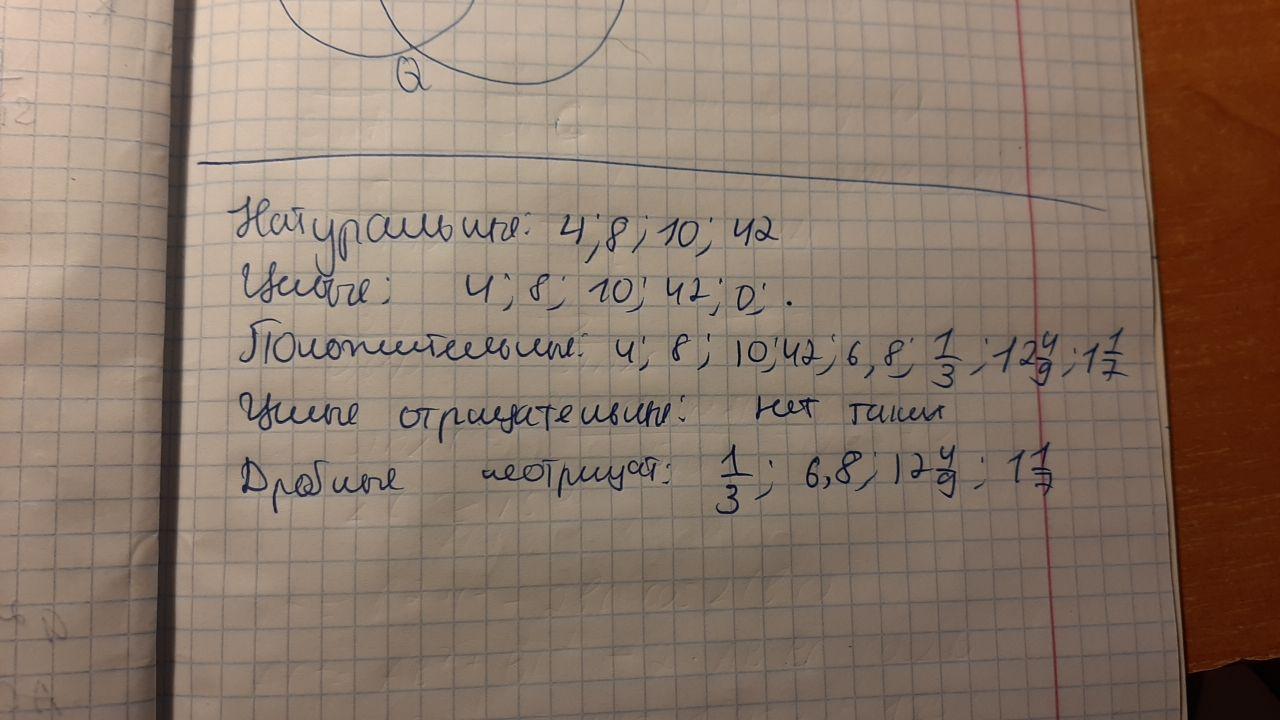 Q
Натуральные: 4; 8; 10; 42
Целые: 4; 8; 10; 42; 0; .
Положительные: 4; 8; 10; 42; 6,8; 1/3; 12 4/9; 1 1/7
Целые отрицательные: нет таких
Дробные неотрицат: 1/3; 6,8; 12 4/9; 1 1/7